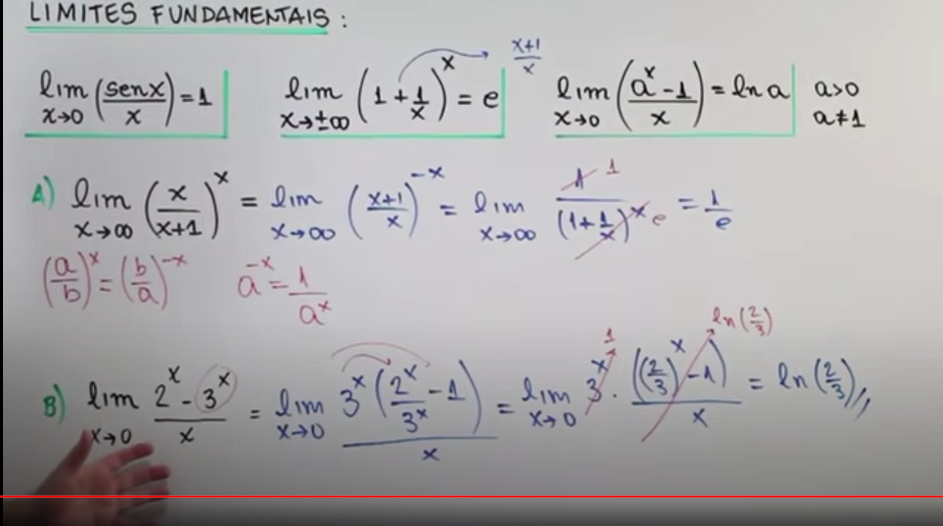 LIMITES FUNDAMENTAIS :
lim x→0 (sen x / x) = 1    lim x→±∞ (1 + 1/x)^x = e    x+1/x    lim x→0 (a^x - 1 / x) = ln a    a>0 a≠1
A) lim x→∞ (x / x+1)^x = lim x→∞ (x+1 / x)^-x = lim x→∞ 1 / (1 + 1/x)^x = 1/e    1    e
(a/b)^x = (b/a)^-x    a^-x = 1/a^x
B) lim x→0 2^x - 3^x / x = lim x→0 3^x (2^x/3^x - 1) / x = lim x→0 3^x · ((2/3)^x - 1) / x = ln(2/3)//    1    ln(2/3)